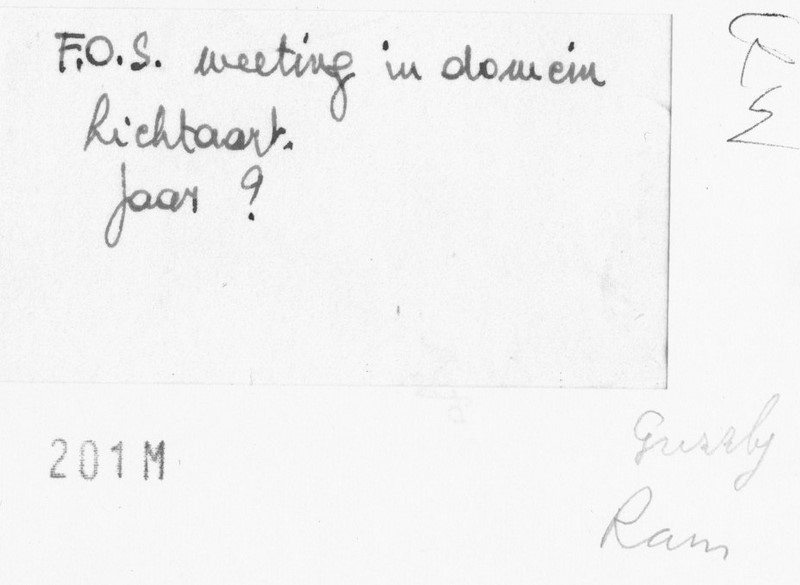 F.O.S. meeting in domein
Lichtaart.
Jaar ?
201M
Grizzly
Ram